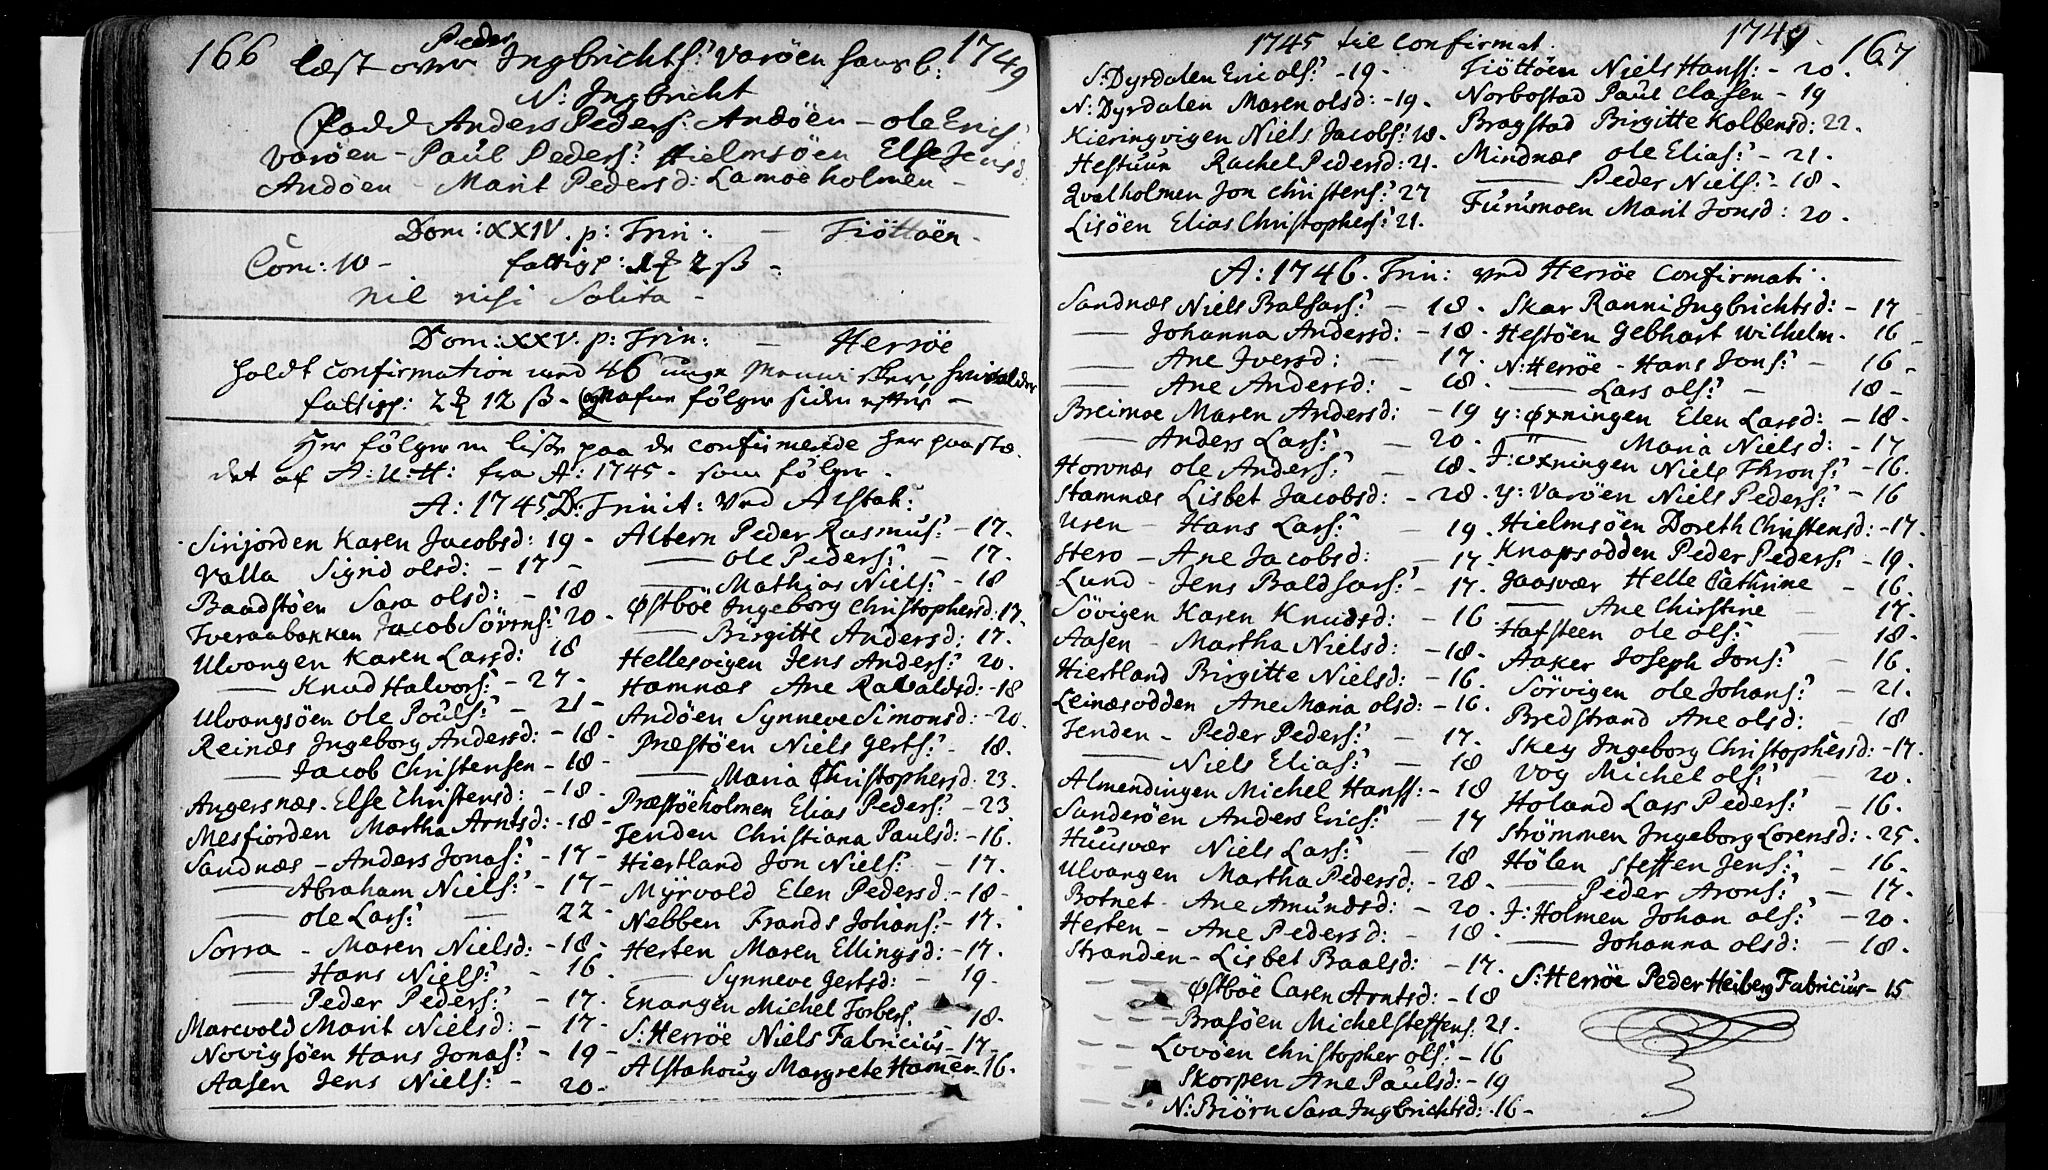 166 1749
Peder
læst over Ingbrichts: Varöen hans b:
N: Ingbricht
fadd Anders Peders: Andöen - ole Erics:
Varöen - Paul Peders: Hielmsöen Else Jensd:
Andöen - Marit Pedersd: Lamoeholmen -
Dom: XXIV. p: Trin: - Tiöttöen -
Com: 10 - fattigp: 2 ß -
nil nisi Solita -
Dom: XXV. p: Trin: - Herröe
holdt confirmation med 46 unge Mennisker, hvis alder
fattigp: 2 12 ß - og Nafne følger siden efter -
Her følger en liste paa de confirmerede her paa stæ-
det af A: U: H: fra A: 1745 - som følger -
A: 1745. D: Trinit: Ved Alstah:
Sinjorden Karen Jacobsd: 19 -
Valla Signd olsd: - 17 -
Baadstöen Sara olsd: - 18
Tveraabakken Jacob Sörens: 20 -
Ulvangen Karen Larsd: 18
—— Knud Halvors: - 27 -
Ulvangsöen ole Pouls: - 21 -
Reinæs Ingeborg Andersd: - 18 -
—— Jacob Christensen - 18 -
Angersnæs - Else Christensd: - 18 -
Mesfiorden Martha Arntsd: - 18 -
Sandnæs - Anders Jonas: - 17 -
—— Abraham Niels: - 17 -
—— ole Lars: — 22 -
Sorra - Maren Nielsd: - 18 -
—— Hans Niels: - 16
—— Peder Peders: - 17 -
Marevold Marit Nielsd: - 17 -
Novigsöen Hans Jonas: - 19 -
Aasen Jens Niels: - 20 -
Altern Peder Rasmus: - 17 -
—— ole Peders: - 17 -
—— Mathias Niels: - 18
Østböe Ingeborg Christophersd: 17.
—— Birgitte Andersd: 17 -
Hellesvigen Jens Anders: 20 -
Hamnæs Ane Ravaldsd: - 18
Andöen Synneve Simonsd: - 20 -
Præstöen Niels Gerts: - 18 -
—— Maria Christophersd. 23 -
Præstöeholmen Elias Peders: - 23
Tenden Christiana Paulsd: - 16.
Hiertland Jon Niels: - 17.
Myrvold Elen Pedersd. - 18 -
Nebben Frands Johans: - 17.
Herten Maren Ellingsd: - 17.
—— Synneve Gertsd: - 19 -
Enangen Michel Torbers: 18 -
S: Herröe Niels Fabricius - 17 -
Alstahoug Margrete Hamer - 16.
1745 til Confirmat. 1749 167
S: Dyrdalen Eric ols: - 19 -
N: Dyrdalen Maren olsd: - 19 -
Kieringvigen Niels Jacobs: 18 -
Hestuun Rachel Pedersd: 21 -
Qvalholmen Jon Christens: 27
Lisöen Elias Christophers: 21.
Tiöttöen Niels Hanss: - 20 -
Norbostad Paul Clasen - 19
Bragstad Birgitte Kolbensd: 22 -
Mindnæs ole Elias: - 21.
—— Peder Niels: - 18 -
Furumoen Marit Jonsd: 20 -
A: 1746. Trin: ved Herröe confirmati -
Sandnæs Niels Balsars: - 18 -
—— Johanna Andersd: - 18 -
—— Ane Iversd: - 17 -
—— Ane Andersd: - 18 -
Breimoe Maren Andersd: - 19
—— Anders Lars: - 20 -
Hornæs ole Anders: - 18 -
Stamnæs Lisbet Jacobsd: - 28 -
Uren - Hans Lars: - 19 -
Stero - Ane Jacobsd: - 17 -
Lund - Jens Baldsars: - 17 -
Sövigen Karen Knudsd: - 16
Aasen - Martha Nielsd: - 18 -
Hiertland Birgitte Nielsd: - 16 -
Leinæsodden Ane Maria olsd: - 16 -
Tenden - Peder Peders: - 17 -
—— Niels Elias: - 18
Almendingen Michel Hanss: - 18
Sanderöen Anders Erics: - 17
Huusvær Niels Lars: - 18
Ulvangen Martha Pedersd: - 28 -
Botnet - Ane Amundsd: - 20 -
Herten - Ane Pedersd: - 18 -
Stranden - Lisbet Baalsd: - 17 -
Østböe Caren Arntsd: - 18
Brasöen Michel Steffens: 21 -
Lovöen Christopher ols: - 16
Skorpen Ane Paulsd: - 19
N: Biörn Sara Ingbrichtsd: - 16 -
Skar Ranni Ingbrichtsd: - 17
Hestöen Gebhart Wilhelm - 16
N: Herröe - Hans Jons: - 16 -
Lars ols: - 18 -
y: Øxningen Elen Larsd: - 18 -
—— Maria Nielsd: - 17
I: Øxningen Niels Throns: - 16.
y: Varöen Niels Peders: - 16
Hielmsöen Doreth Christensd: - 17 -
Knapsodden Peder Peders: - 19 -
Jaasvær Helle Cathrine - 16 -
—— Ane Chirstine - 17 -
Hafsteen ole ols: - 18 -
Aaker Joseph Jons: - 16 -
Sörvigen ole Johans: - 21.
Bredstrand Ane olsd: - 18
Skey Ingeborg Christophersd: - 17.
Vog Michel ols: - 20.
Holand Lars Peders: - 16.
Strömmen Ingeborg Lorensd: - 25 -
Hölen Steffen Jens: - 16 -
—— Peder Arons: - 17 -
I: Holmen Johan ols: - 20 -
—— Johanna olsd: - 18 -
S: Herröe Peder Heiberg Fabricius - 15